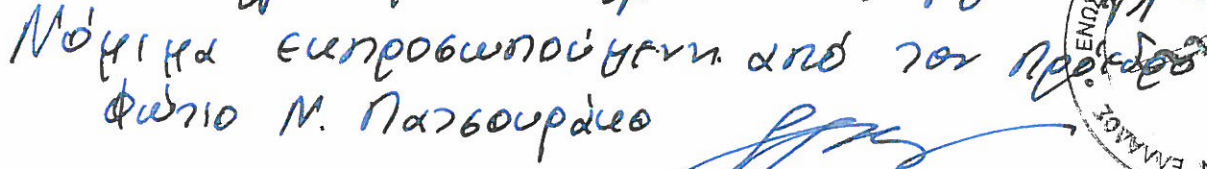 Νόμιμα εκπροσωπούμενη από τον Πρόεδρο
Φώτιο Ν. Πατσουράκο
ΕΝΩΣ
ΕΛΛΑΔΟΣ